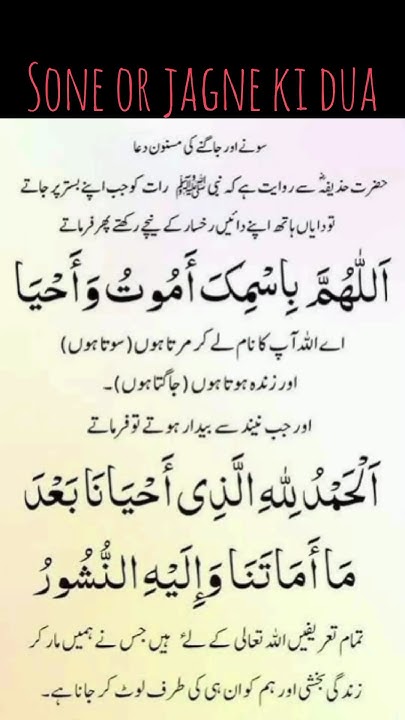 SONE OR JAGNE KI DUA
سونے اور جاگنے کی مسنون دعا
حضرت حذیفہؓ سے روایت ہے کہ نبی ﷺ رات کو جب اپنے بستر پر جاتے
تو دایاں ہاتھ اپنے دائیں رخسار کے نیچے رکھتے پھر فرماتے
اَللّٰهُمَّ بِاسْمِکَ أَمُوتُ وَأَحْيَا
اے اللہ آپ کا نام لے کر مرتا ہوں (سوتا ہوں)
اور زندہ ہوتا ہوں (جاگتا ہوں)۔
اور جب نیند سے بیدار ہوتے تو فرماتے
اَلْحَمْدُ لِلّٰهِ الَّذِی أَحْيَانَا بَعْدَ
مَا أَمَاتَنَا وَإِلَيْهِ النُّشُورُ
تمام تعریفیں اللہ تعالی کے لئے ہیں جس نے ہمیں مار کر
زندگی بخشی اور ہم کو ان ہی کی طرف لوٹ کر جانا ہے۔